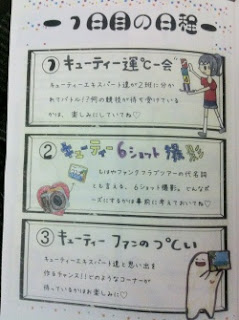 1日目の日程
① キューティー運℃ー会
キューティーエキスパート達が2班に分か
れてバトル!?何の競技が待ち受けている
かは、楽しみにしていてね♡
② キューティー6ショット撮影
もはやファンクラブツアーの代名詞
とも言える、6ショット撮影。どんなポ
ーズにするかは事前に考えておいてね♡
③ キューティーファンのつ℃い
キューティーエキスパート達と思い出を
作るチャンス!!どのようなコーナーが
待っているかはお楽しみに♡